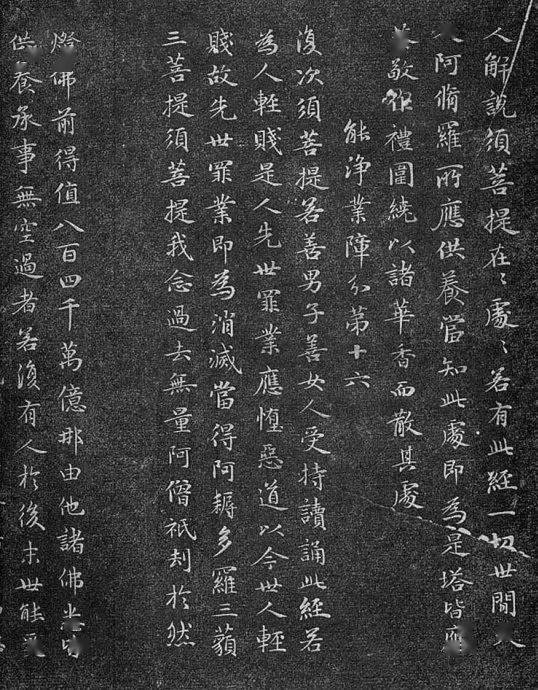 人解說須菩提在〻處〻若有此經一切世間天
人阿脩羅所應供養當知此處即為是塔皆應
恭敬作禮圍繞以諸華香而散其處
能淨業障分第十六
復次須菩提若善男子善女人受持讀誦此經若
為人輕賤是人先世罪業應墮惡道以今世人輕
賤故先世罪業即為消滅當得阿耨多羅三藐
三菩提須菩提我念過去無量阿僧祇劫於然
燈佛前得值八百四千萬億那由他諸佛悉皆
供養承事無空過者若復有人於後末世能受